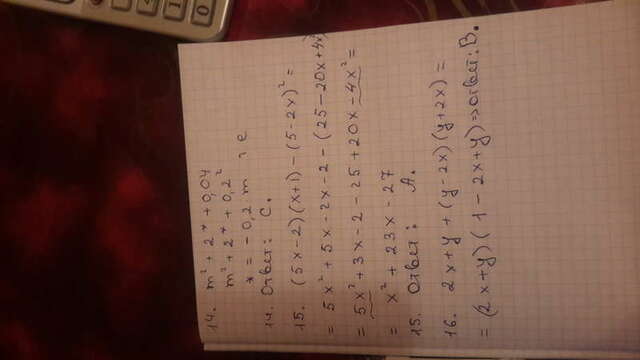 14. m² + 2* + 0,04
m² + 2* + 0,2²
* = -0,2 m
14. Ответ: С.
15. (5x-2)(x+1) - (5-2x)² =
= 5x² + 5x - 2x - 2 - (25 - 20x + 4x²)
= 5x² + 3x - 2 - 25 + 20x - 4x² =
= x² + 23x - 27
15. Ответ: А.
16. 2x + y + (y - 2x)(y + 2x) =
= (2x+y)(1 - 2x + y) => Ответ: В.